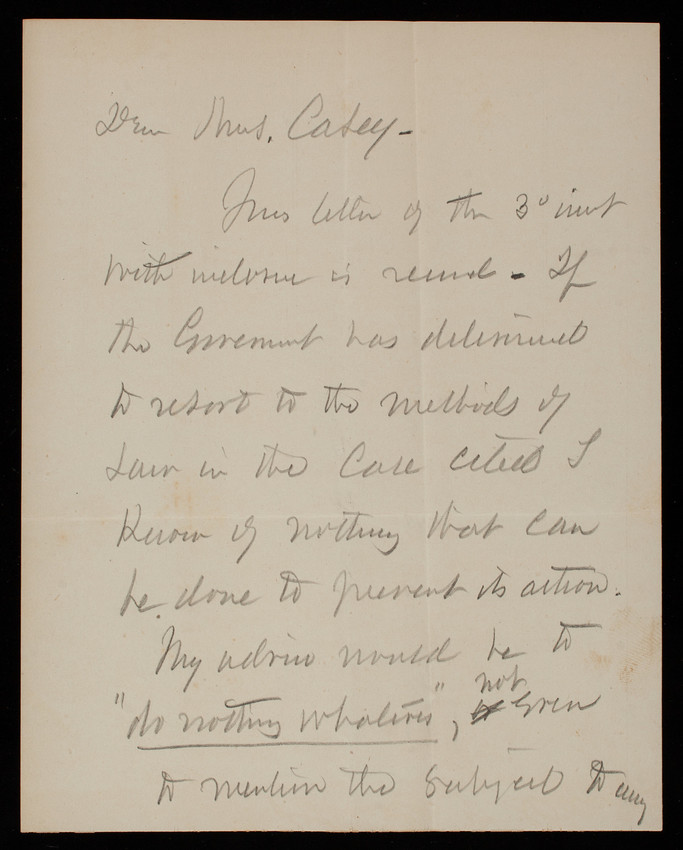 Dear Mrs. Casey -
Your letter of the 3d inst
with inclosure is recived - If
the Goverment has determined
to resort to the methods of
Law in the Case cited I
Know of nothing that can
be done to prevent its action.
My advice would be to
"do nothing whatever", not even
to mention the subject to any